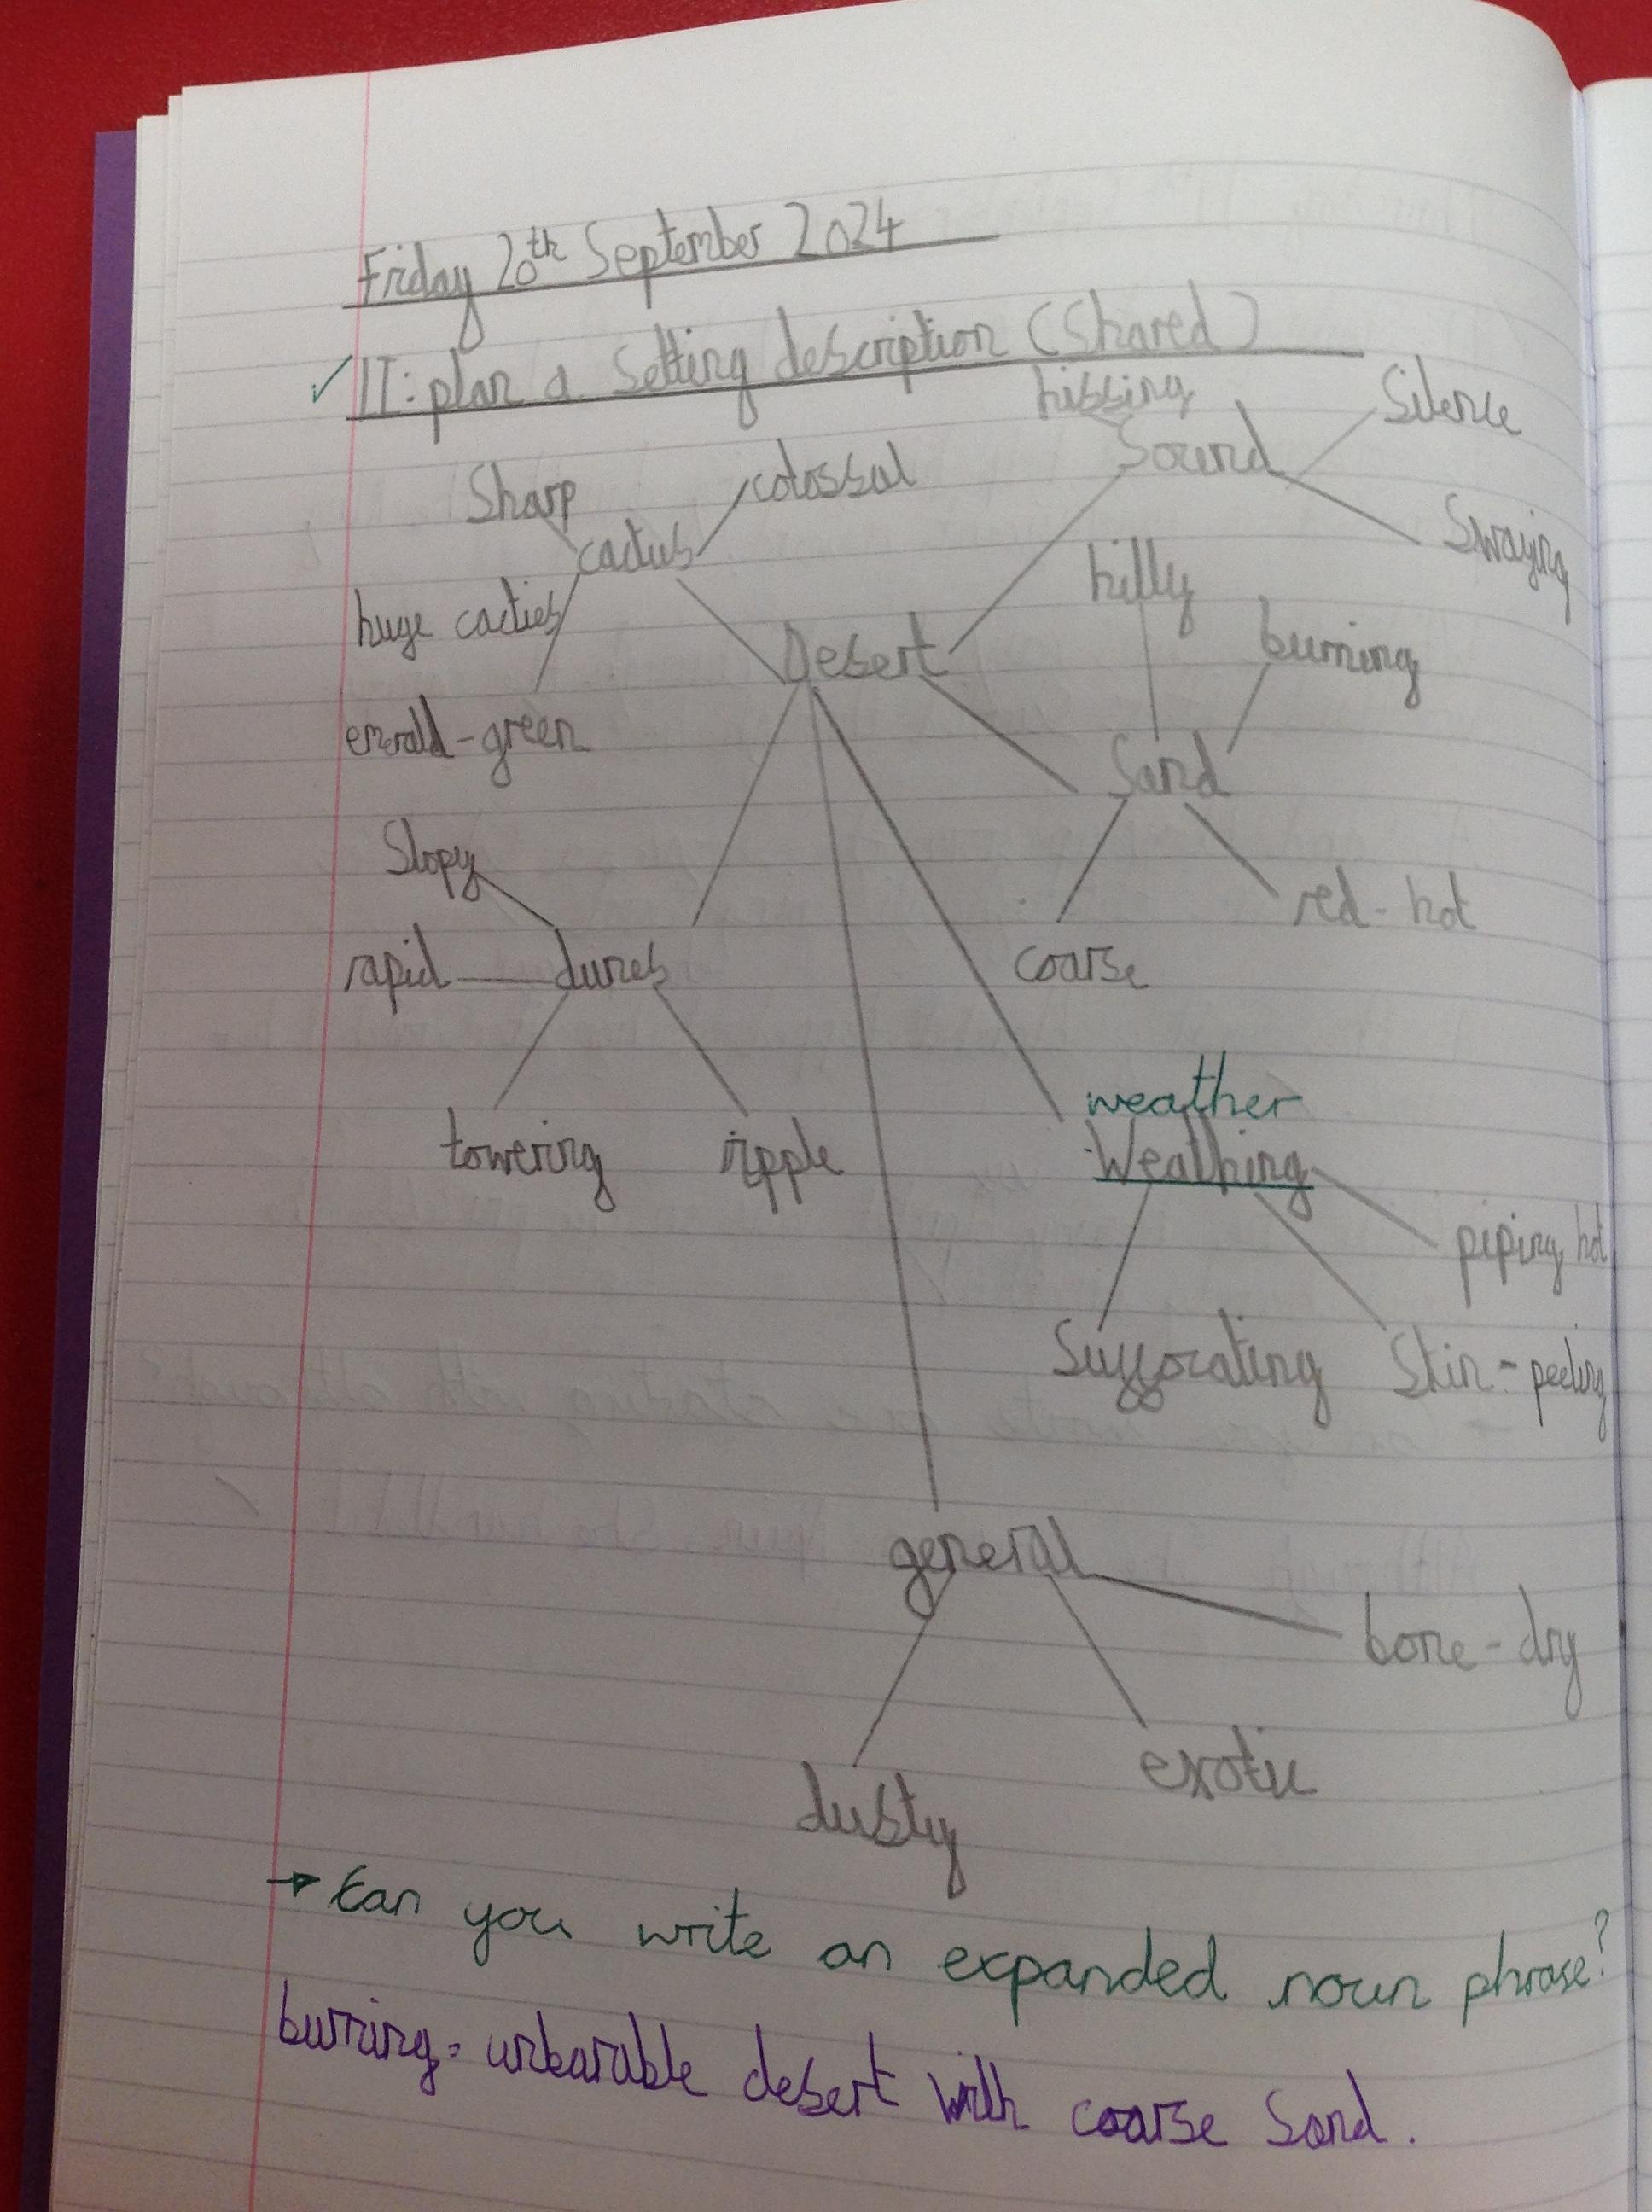 Friday 20th September 2024
✓ LI: plan a setting description (Shared)
hissing
Silence
Sound
Sharp
colossal
cactus
Swaying
hilly
huge cacties
Desert
burning
emerald-green
Sand
Slopy
red-hot
rapid
dunes
coarse
weather
towering
ripple
Weathing
piping hot
Suffocating
Skin-peeling
general
bone-dry
exotic
dusty
→ Can you write an expanded noun phrase?
burning- unbarable desert with coarse Sand.